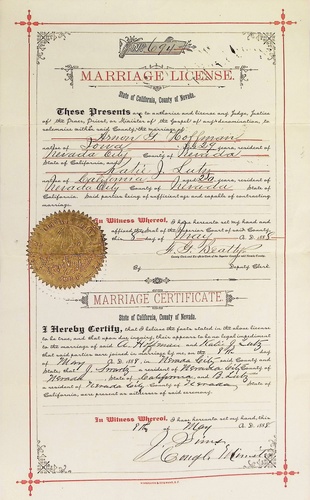 No. 694
MARRIAGE LICENSE.
State of California, County of Nevada.
These Presents are to authorize and license any Judge, Justice
of the Peace, Priest, or Minister of the Gospel of any denomination, to
solemnize within said County, the marriage of
Hoffman
native of Iowa aged 29 years, resident of
Nevada City County of Nevada
and Katie J. Lutz
native of California aged years, resident of
Nevada City County of Nevada State of
California. Said parties being of sufficient age and capable of contracting
marriage.
In Witness Whereof, I have hereunto set my hand and
affixed the Seal of the Superior Court of said County
this 8 day of May A.D. 1888
F. G. Beatty
County Clerk and Ex-officio Clerk of the Superior Court in and for Nevada County.
By
Deputy Clerk.
MARRIAGE CERTIFICATE.
State of California, County of Nevada.
I Hereby Certify, that I believe the facts stated in the above license
to be true, and that upon due inquiry, there appears to be no legal impediment
to the marriage of said A. Hoffman and Katie J. Lutz
that said parties were joined in marriage by me, on the 8th day
of May A.D. 1888, in Nevada City said County and
State; that J. a resident of Nevada City County of
Nevada, State of California and B. Lutz
a resident of Nevada City County of Nevada, State of
California, were present as witnesses of said ceremony.
In Witness Whereof, I have hereunto set my hand, this
8th of May A.D. 1888.
J. Sims
Congl. Minister